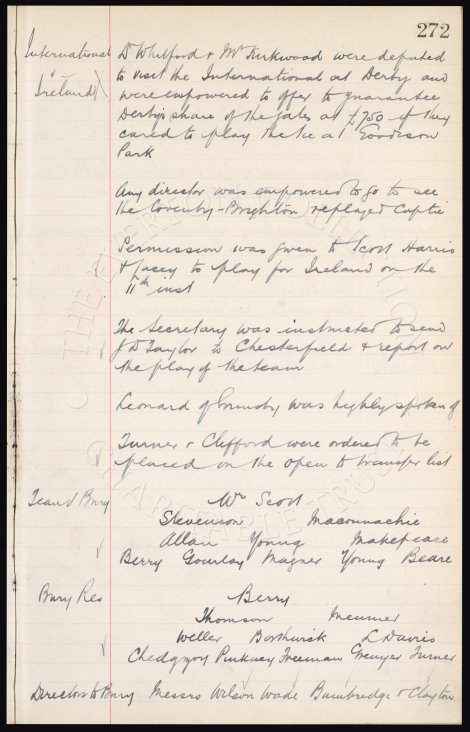 272
International Dr Whitford & Mr Kirkwood were deputed
v Ireland X to visit the International at Derby and
were empowered to offer to guarantee
Derby's share of the gates at £750 if they
cared to play the tie at Goodison
Park
Any director was empowered to go to see
the Coventry-Brighton replayed Cup tie
Permission was given to Scott Harris
& Lacey to play for Ireland on the
11th inst
The Secretary was instructed to send
J D Taylor to Chesterfield & report on
the play of the team
Leonard of Grimsby was highly spoken of
Turner & Clifford were ordered to be
placed on the open to transfer list
Team v Bury Wm Scott
Stevenson Maconnachie
Allan Young Makepeace
Berry Gourlay Magner Young Beare
Bury Res Berry
Thomson Meunier
Weller Borthwick L Davies
Chedgzoy Pinkney Freeman Grenyer Turner
Directors to Bury Messrs Wilson Wade Bainbridge & Clayton